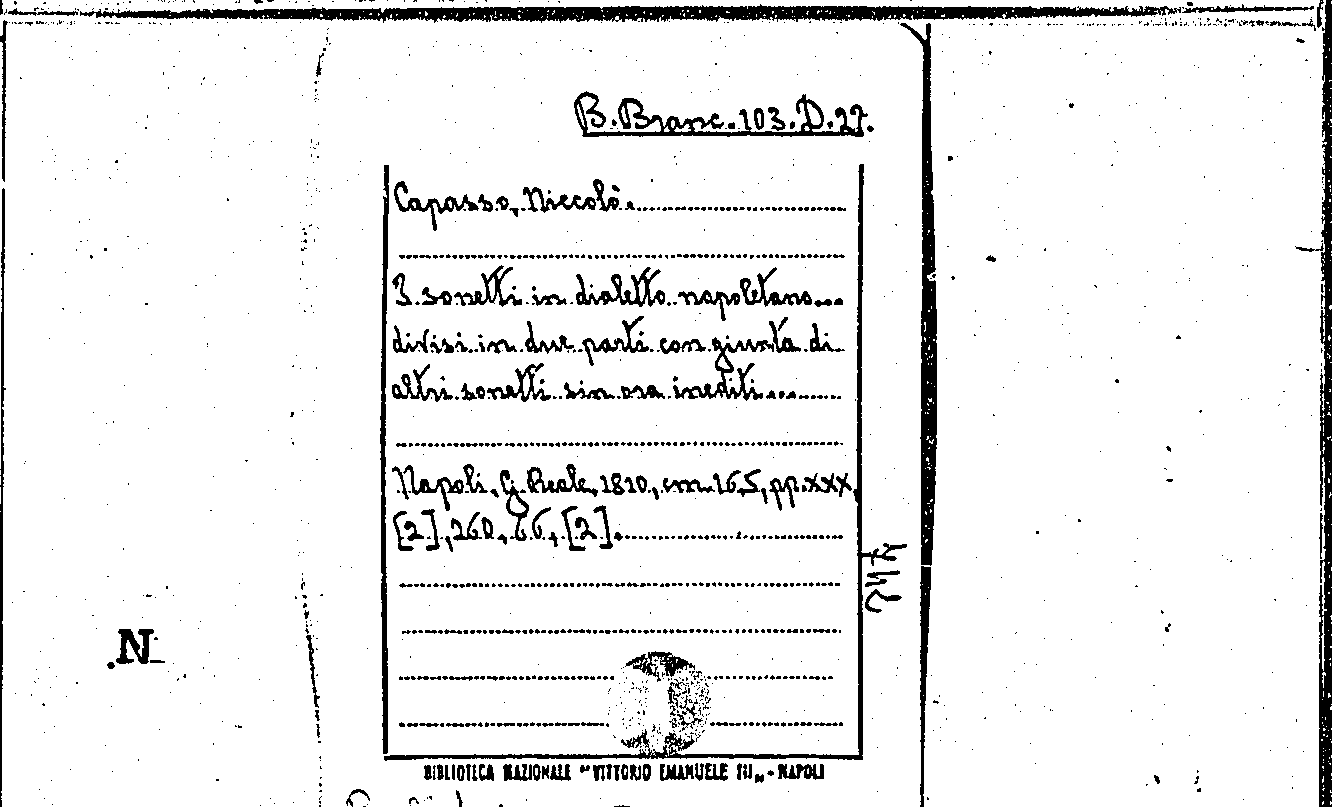 B. Branc. 103. D. 27.
Capasso, Niccolò.
I sonetti in dialetto napoletano...
divisi in due parti con giunta di
altri sonetti sin ora inediti...
Napoli, G. Reale, 1810, cm. 16,5, pp. xxx,
[2], 260, 66, [2].
N
BIBLIOTECA NAZIONALE "VITTORIO EMANUELE III" - NAPOLI